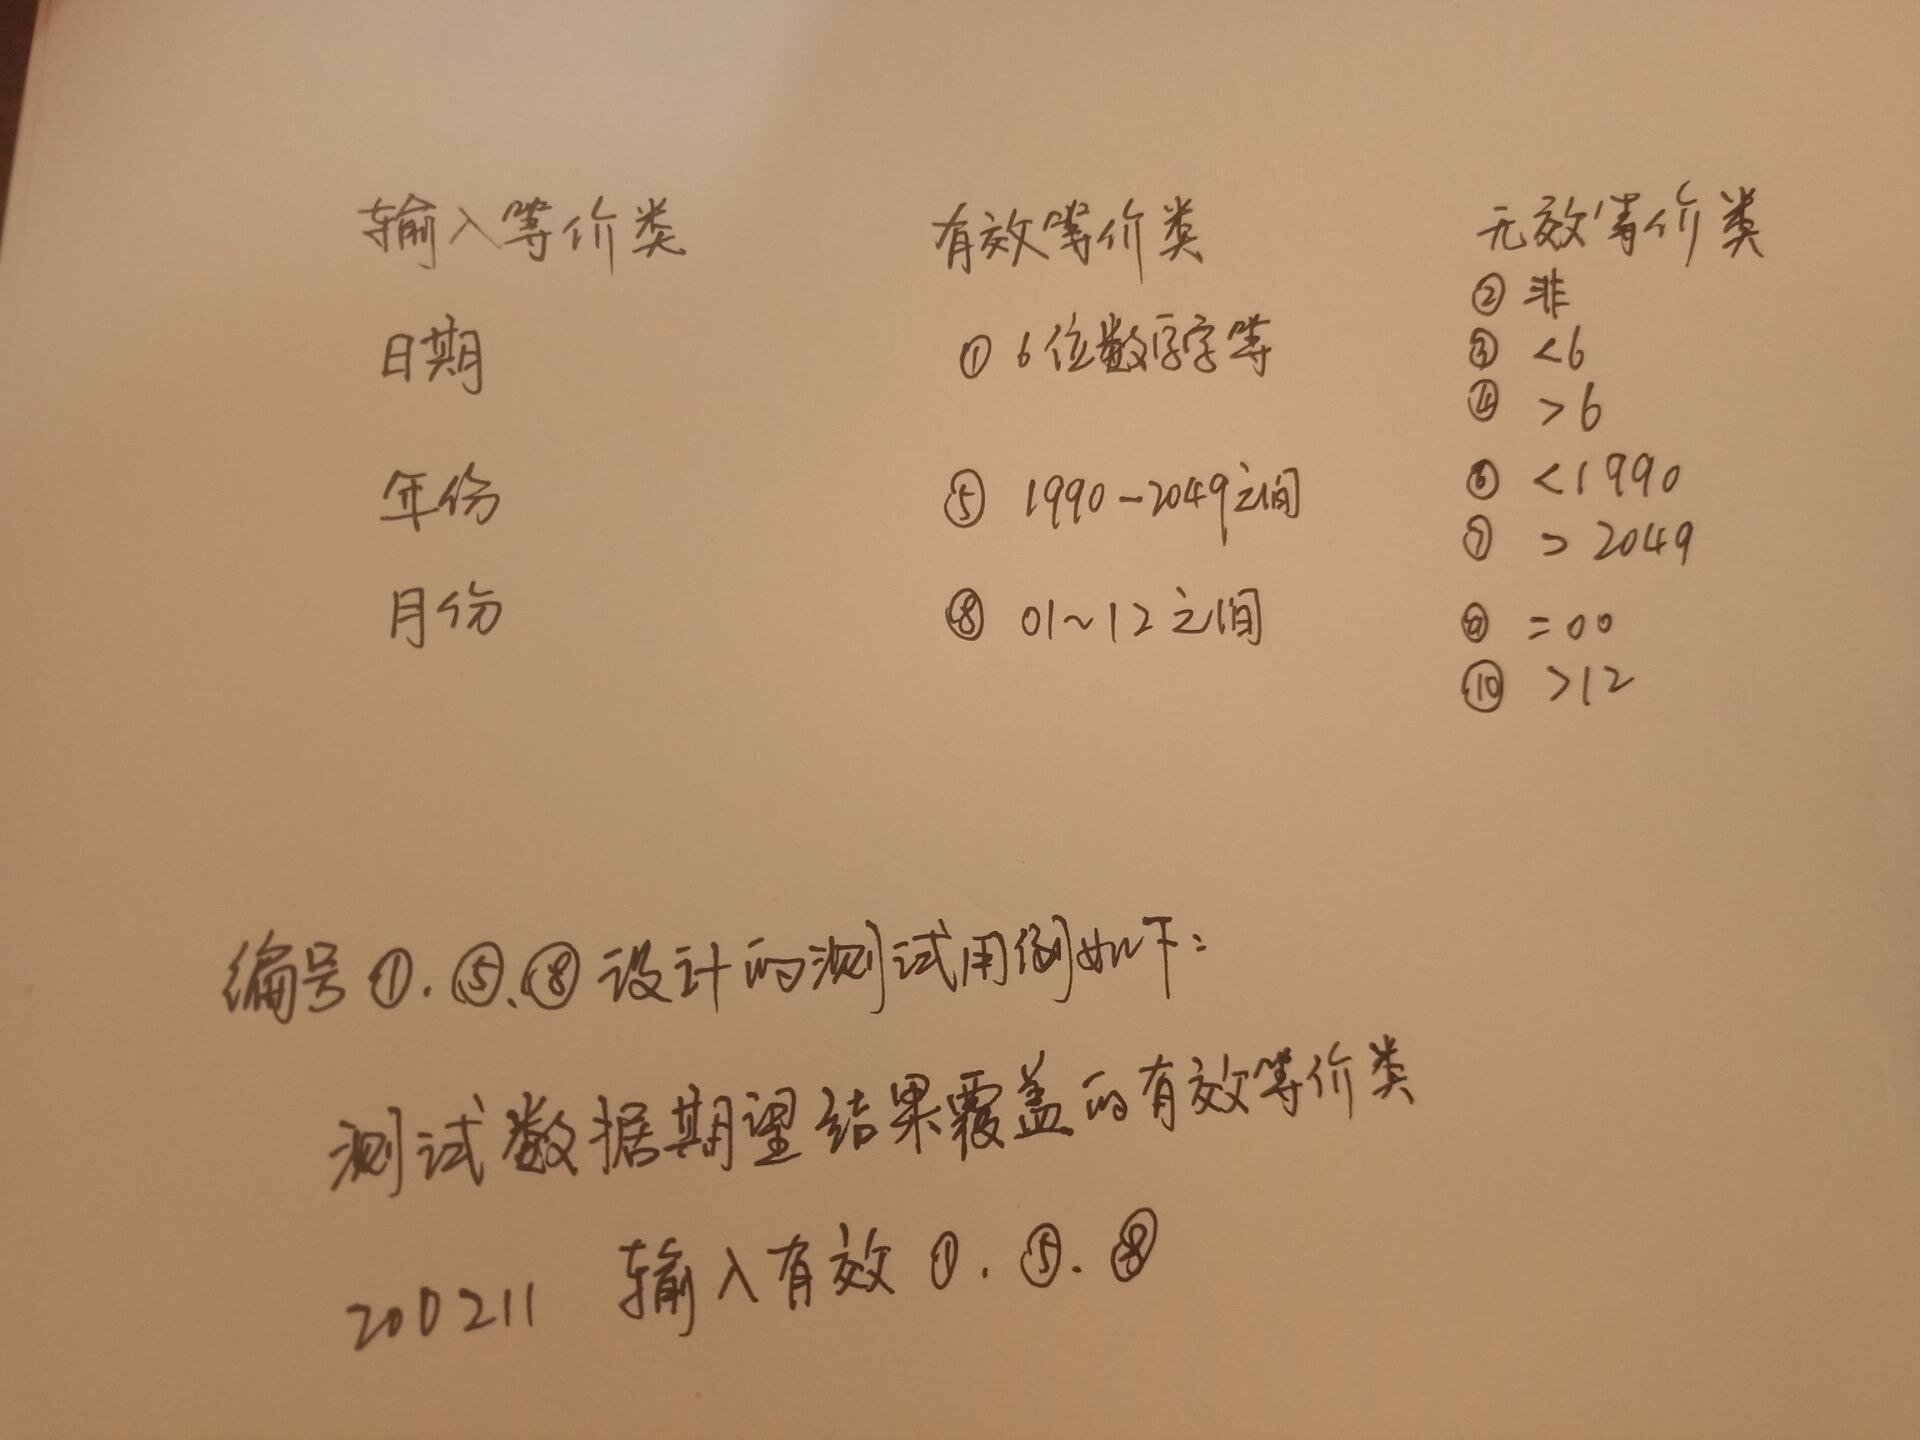 输入等价类 有效等价类 无效等价类
② 非
日期 ① 6位数字字等 ③ <6
④ >6
年份 ⑤ 1990-2049之间 ⑥ <1990
⑦ >2049
月份 ⑧ 01~12之间 ⑨ =00
⑩ >12
编号①.⑤、⑧设计的测试用例如下:
测试数据期望结果覆盖的有效等价类
200211 输入有效①.⑤.⑧